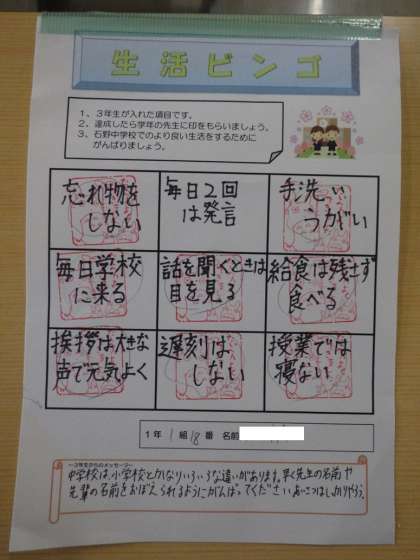 生活ビンゴ
1、3年生が入れた項目です。
2、達成したら学年の先生に印をもらいましょう。
3、石野中学校でのより良い生活をするために
がんばりましょう。
忘れ物を
しない
毎日2回
は発言
手洗い
うがい
毎日学校
に来る
話を聞くときは
目を見る
給食は残さず
食べる
挨拶は大きな
声で元気よく
遅刻は
しない
授業では
寝ない
1年 1組 18番 名前
～3年生からのメッセージ～
中学校は、小学校とかなりいろいろな違いがあります。早く先生の名前や
先輩の名前をおぼえられるようにがんばってください。あいさつはしっかりやろう。